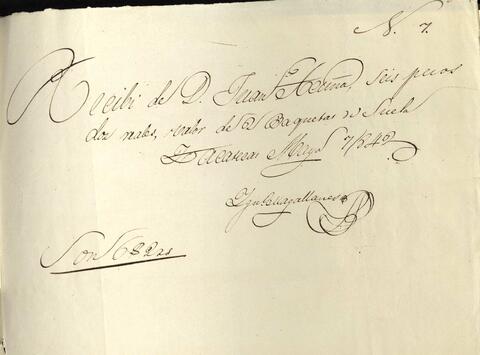 N. 7.
Recibi de D. Juan Acuña, seis pesos
dos reales, valor de 2 Baquetas de Suela
Zacatecas Mayo 7/842
Magallanes
Son 6 ps 2 rs